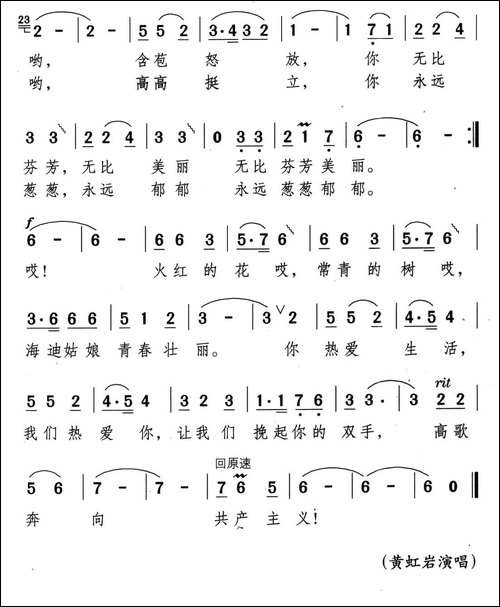 23
2 - | 2 - | 5 5 2 | 3·4 3 2 | 1 - | 1 1 7 1 | 2 2 4
哟， 含苞 怒 放， 你 无比
哟， 高高 挺 立， 你 永远
3 3 | 2 2 4 | 3 3 | 0 3 3 | 2 1 7 | 6 - | 6 - :‖
芬芳，无比 美丽 无比芬芳美丽。
葱葱，永远 郁郁 永远葱葱郁郁。
f
6 - | 6 - | 6 6 3 | 5·7 6 | 6 6 3 | 5·7 6
哎！ 火红的花哎，常青的树哎，
3·6 6 6 | 5 1 2 | 3 - | 3 ∨ 2 | 5 5 2 | 4·5 4
海迪姑娘青春壮丽。 你热爱 生活，
rit
5 5 2 | 4·5 4 | 3 2 3 | 1·1 7 6 | 3 3· | 3 2 2
我们热爱你，让我们 挽起你的双手， 高歌
回原速
5 6 | 7 - | 7 - | 7 6 5 | 1 - | 6 - | 6 0 ‖
奔 向 共产主义！
（黄虹岩演唱）